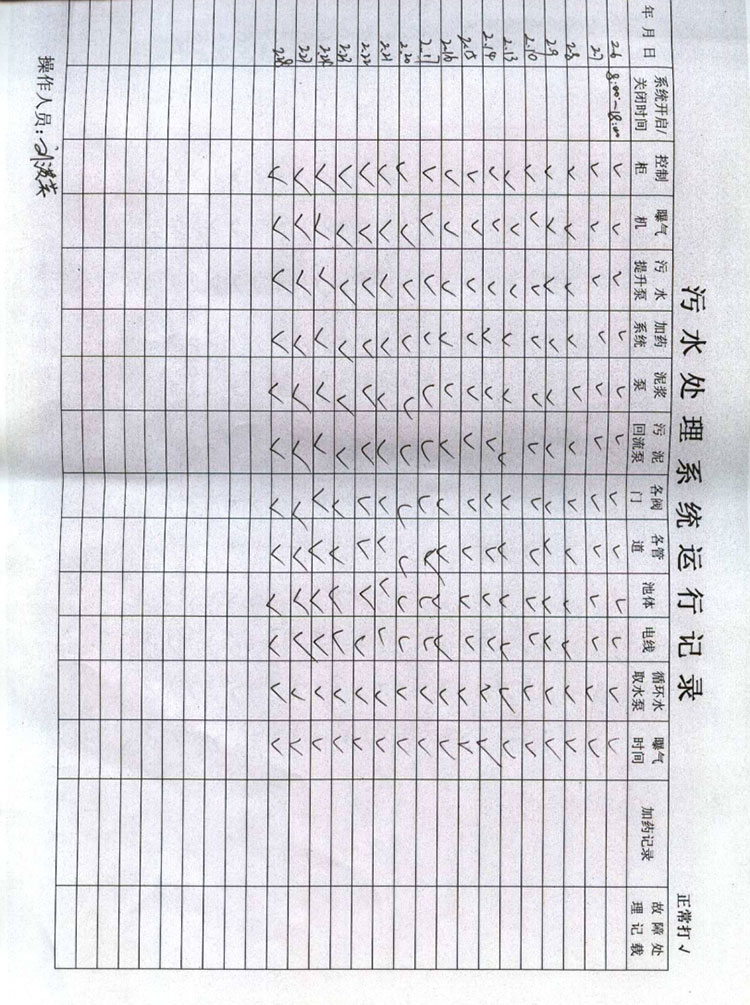 污水处理系统运行记录
正常打√
年月日 系统开启/关闭时间 控制柜 曝气机 污水提升泵 加药系统 泥浆泵 污泥回流泵 各阀门 各管道 池体 电线 循环水取水泵 曝气时间 加药记录 故障处理记载
2.6 8:00~18:00 √ √ √ √ √ √ √ √ √ √ √ √
2.7 √ √ √ √ √ √ √ √ √ √ √ √
2.8 √ √ √ √ √ √ √ √ √ √ √ √
2.9 √ √ √ √ √ √ √ √ √ √ √ √
2.10 √ √ √ √ √ √ √ √ √ √ √ √
2.13 √ √ √ √ √ √ √ √ √ √ √ √
2.14 √ √ √ √ √ √ √ √ √ √ √ √
2.15 √ √ √ √ √ √ √ √ √ √ √ √
2.16 √ √ √ √ √ √ √ √ √ √ √ √
2.17 √ √ √ √ √ √ √ √ √ √ √ √
2.20 √ √ √ √ √ √ √ √ √ √ √ √
2.21 √ √ √ √ √ √ √ √ √ √ √ √
2.22 √ √ √ √ √ √ √ √ √ √ √ √
2.23 √ √ √ √ √ √ √ √ √ √ √ √
2.24 √ √ √ √ √ √ √ √ √ √ √ √
2.27 √ √ √ √ √ √ √ √ √ √ √ √
2.28 √ √ √ √ √ √ √ √ √ √ √ √
操作人员：刘